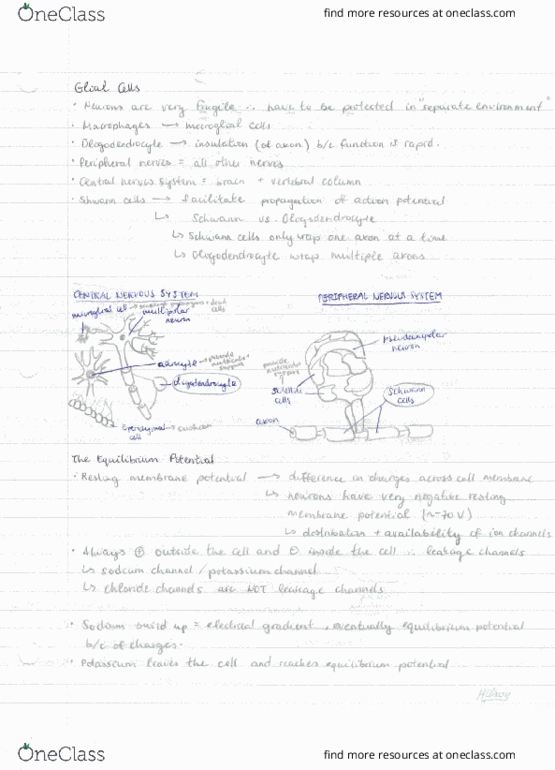 OneClass
find more resources at oneclass.com
Glial Cells
• Neurons are very fragile ∴ have to be protected in "separate environment"
• Macrophages → microglial cells
• Oligodendrocyte → insulation (of axon) b/c function is rapid.
• Peripheral nerves = all other nerves
• Central nervous system = brain + vertebral column
• Shwann cells → facilitate propagation of action potential
↳ Schwann vs. Oligodendrocyte
↳ Schwann cells only wrap one axon at a time
↳ Oligodendrocyte wrap multiple axons
CENTRAL NERVOUS SYSTEM
PERIPHERAL NERVOUS SYSTEM
microglial cell → + dead cells
multipolar neuron
astrocyte → provide support
oligodendrocyte
Ependymal cell → cushion
pseudounipolar neuron
provide support
satellite cells
Schwann cells
axon
The Equilibrium Potential
• Resting membrane potential → difference in charges across cell membrane
↳ neurons have very negative resting
membrane potential (~-70V)
↳ distribution + availability of ion channels
• Always ⊕ outside the cell and ⊖ inside the cell ∴ leakage channels
↳ sodium channel / potassium channel
↳ chloride channels are NOT leakage channels
• Sodium build up = electrical gradient, eventually equilibrium potential
b/c of charges.
• Potassium leaves the cell and reaches equilibrium potential
Hilroy
OneClass
find more resources at oneclass.com